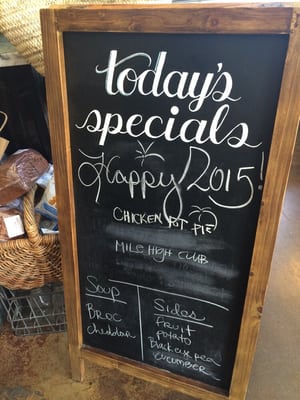 today's
specials
Happy 2015!
CHICKEN POT PIE
MILE HIGH CLUB
Soup
BROC
cheddar
Sides
FRUIT
POTATO
Black eye pea
CUCUMBER